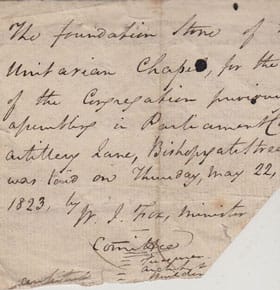 The foundation Stone of
Unitarian Chapel, for the
of the Congregation previous
assembling in Parliament C
artillery Lane, Bishopsgate Stree
was laid on Thursday, May 22,
1823, by
W. J. Fox, Minister
Committee
Treasurer
Architect
Builder